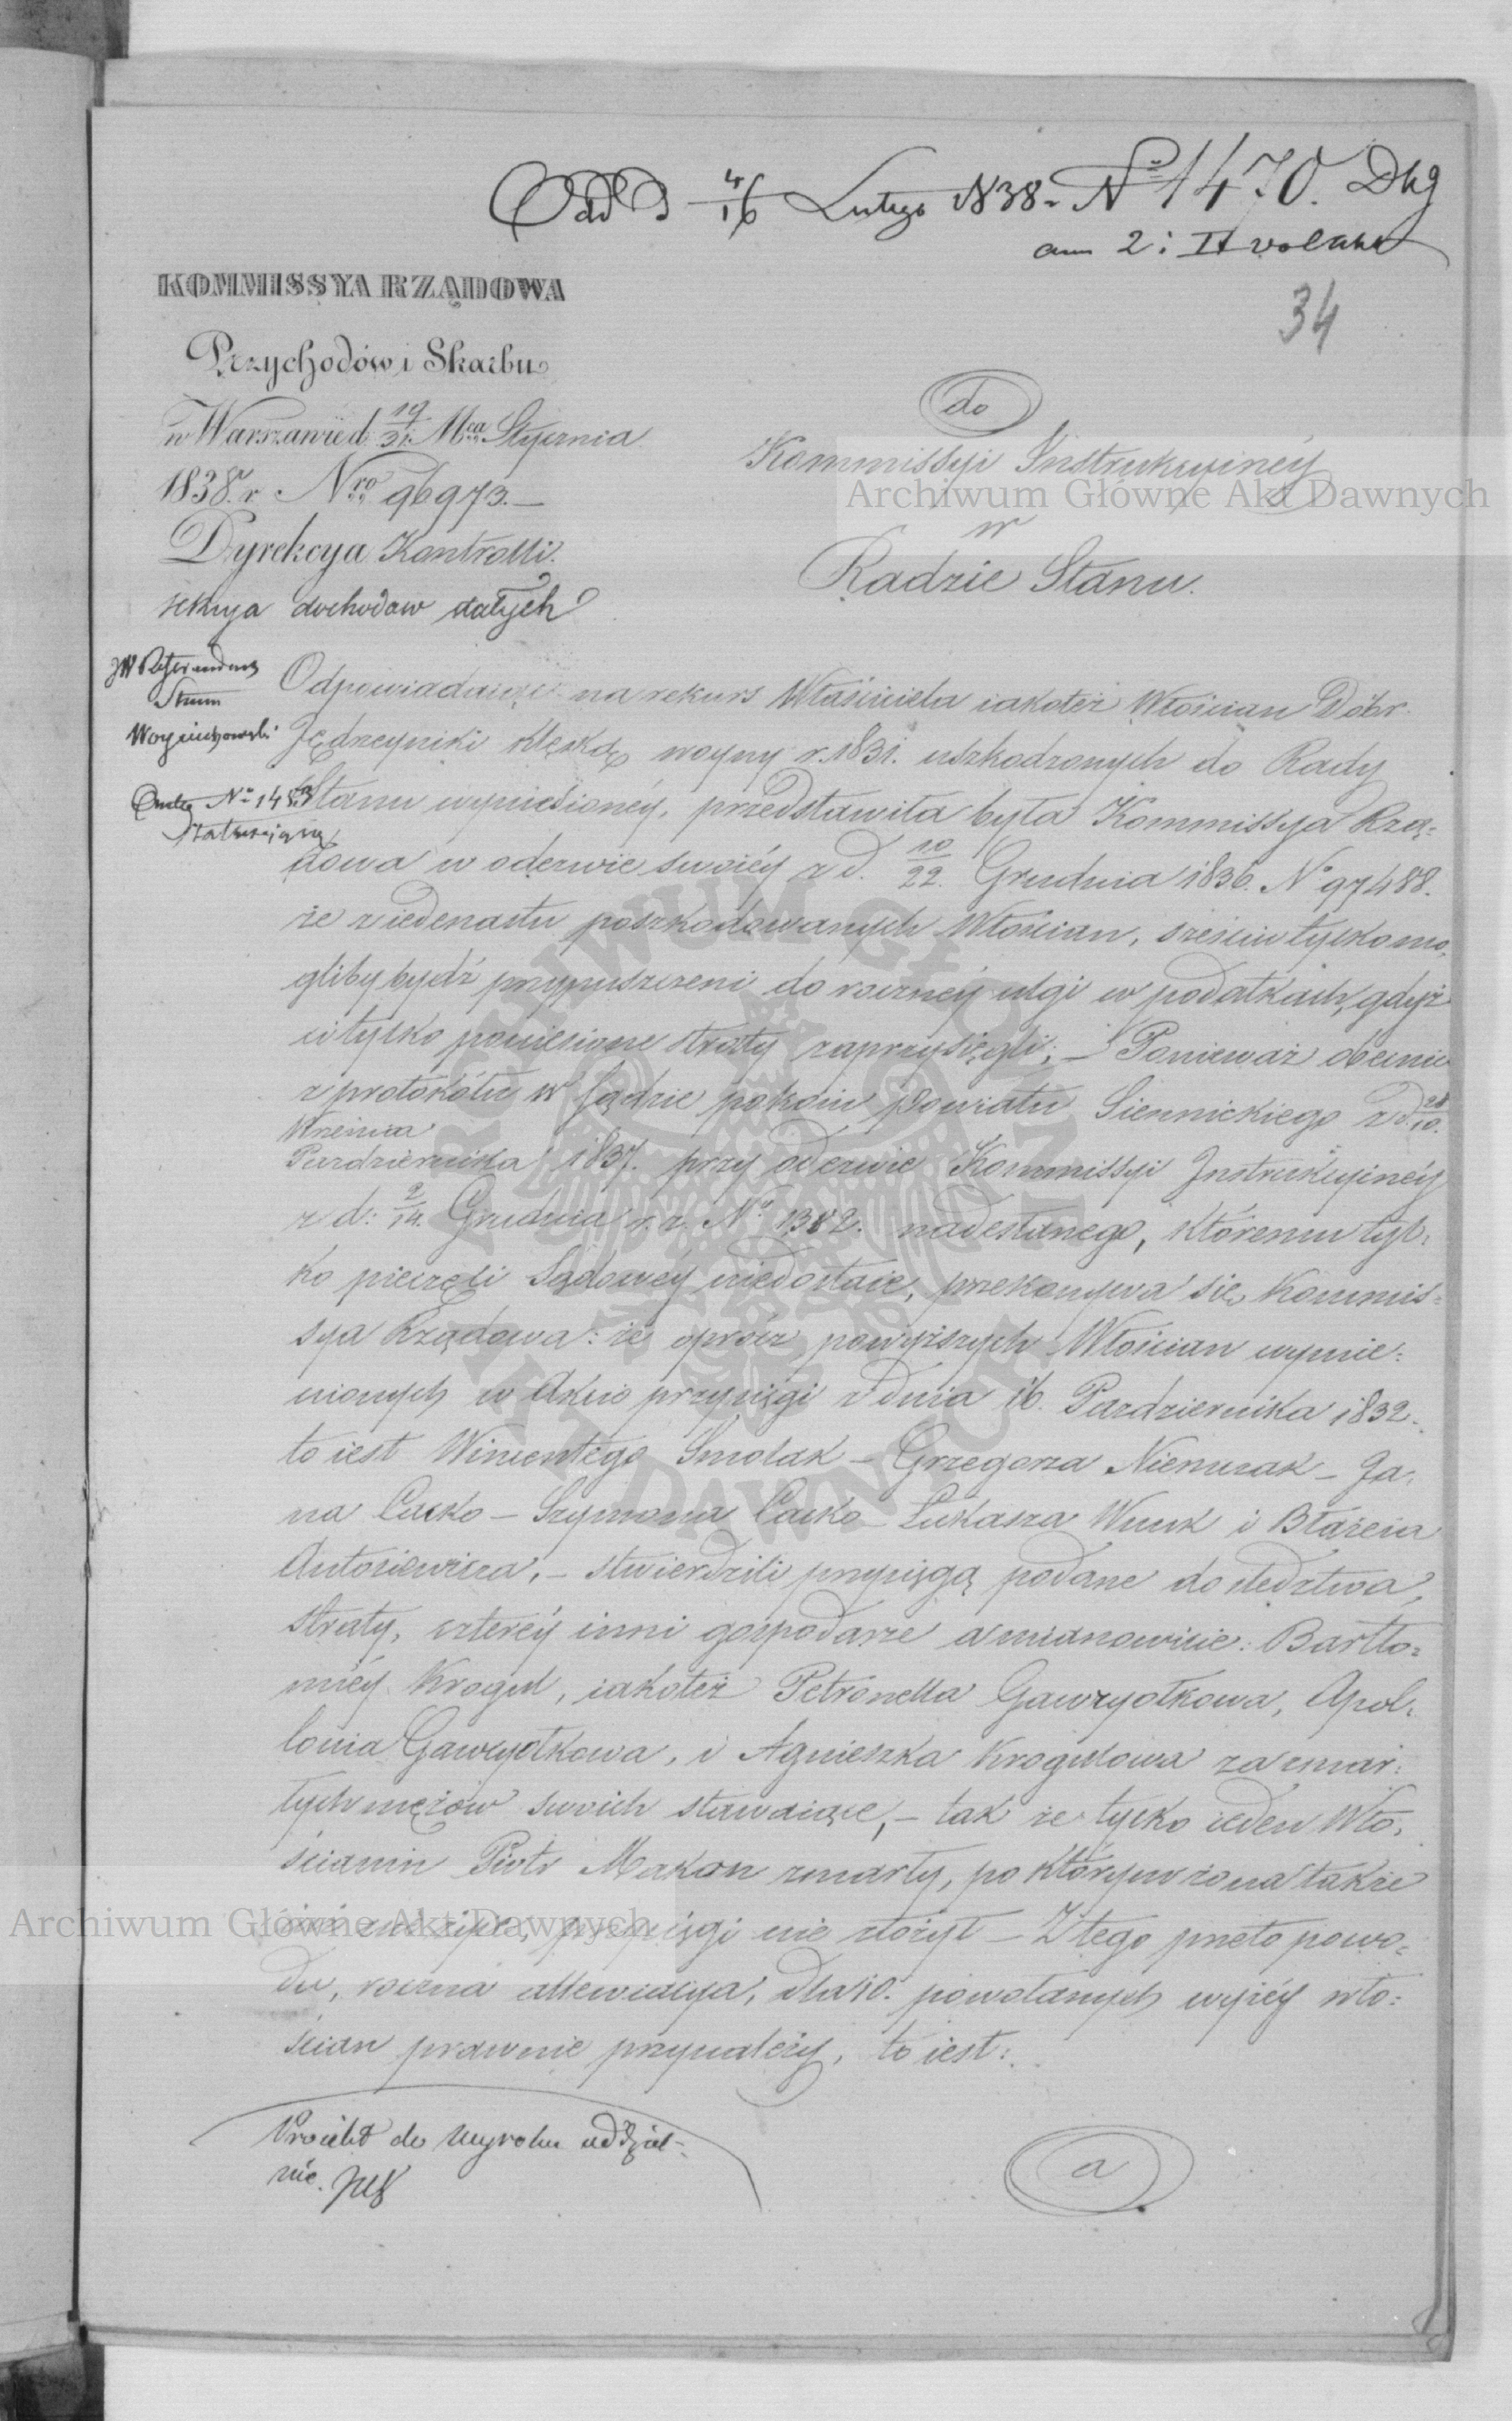 Odd D 4/16 Lutego 1838 r. No 1470. Dkg
ann 2: II
34
KOMMISSYA RZĄDOWA
Przychodów i Skarbu
w Warszawie d. 19/31 Mca Stycznia
1838. r. Nro 96973.—
Dyrekcya Kontrolli.
sekcya dochodow stałych
do
Kommissyi Instrukcyinéy
w
Radzie Stanu.
Archiwum Główne Akt Dawnych
JW Referendarz
Stanu
Woyciechowski
No 1453
Odpowiadaiąc na rekurs Właściciela iakoteż Włościan Dóbr
Jędrzeyniki klęską woyny r. 1831. uszkodzonych do Rady
Stanu wyniesionéy, przedstawiła była Kommissya Rzą=
dowa w odezwie swoiéy z d. 10/22. Grudnia 1836. No 97488.
że z iedenastu poszkodowanych Włościan, sześciu tylko mo=
gliby bydź przypuszczeni do roczney ulgi w podatkach, gdyż
ci tylko poniesione straty zaprzysięgli; — Ponieważ obecnie
z protokółu w Sądzie pokoiu Powiatu Siennickiego z d. 28/10.
Września
Pazdziernika 1837. przy odezwie Kommissyi Instrukcyinéy
z d: 2/14. Grudnia r. z. No 1382. nadesłanego, któremu tyl=
ko pieczęci Sądowéy niedostaie, przekonywa się Kommis=
sya Rządowa: że oprócz powyższych Włościan wymie=
nionych w Akcie przysięgi z dnia 16. Pazdziernika 1832.
to iest Wincentego Smolak — Grzegorza Niemczak — Ja=
na Cacko — Szymona Cacko — Łukasza Wnuk i Błażeia
Antosiewicza, — stwierdzili przysięgą podane do śledztwa
straty, czteréy inni gospodarze a mianowicie: Bartło=
miéy Krogul, iakoteż Petronella Gawryołkowa, Apol=
lonia Gawryołkowa, i Agnieszka Krogulowa za zmar=
łych mężów swoich stawaiące, — tak że tylko ieden Wło=
ścianin Piotr Makan zmarły, po którym żona także
iuż nieżyie, przysięgi nie złożył — Z tego przeto powo=
du, roczna allewiacya, dla 10. powołanych wyżéy wło=
ścian prawnie przynależy, to iest:
Archiwum Główne Akt Dawnych
Proiekt do Wyroku oddziel=
nie.
a
ARCHIWUM GŁÓWNE AKT DAWNYCH